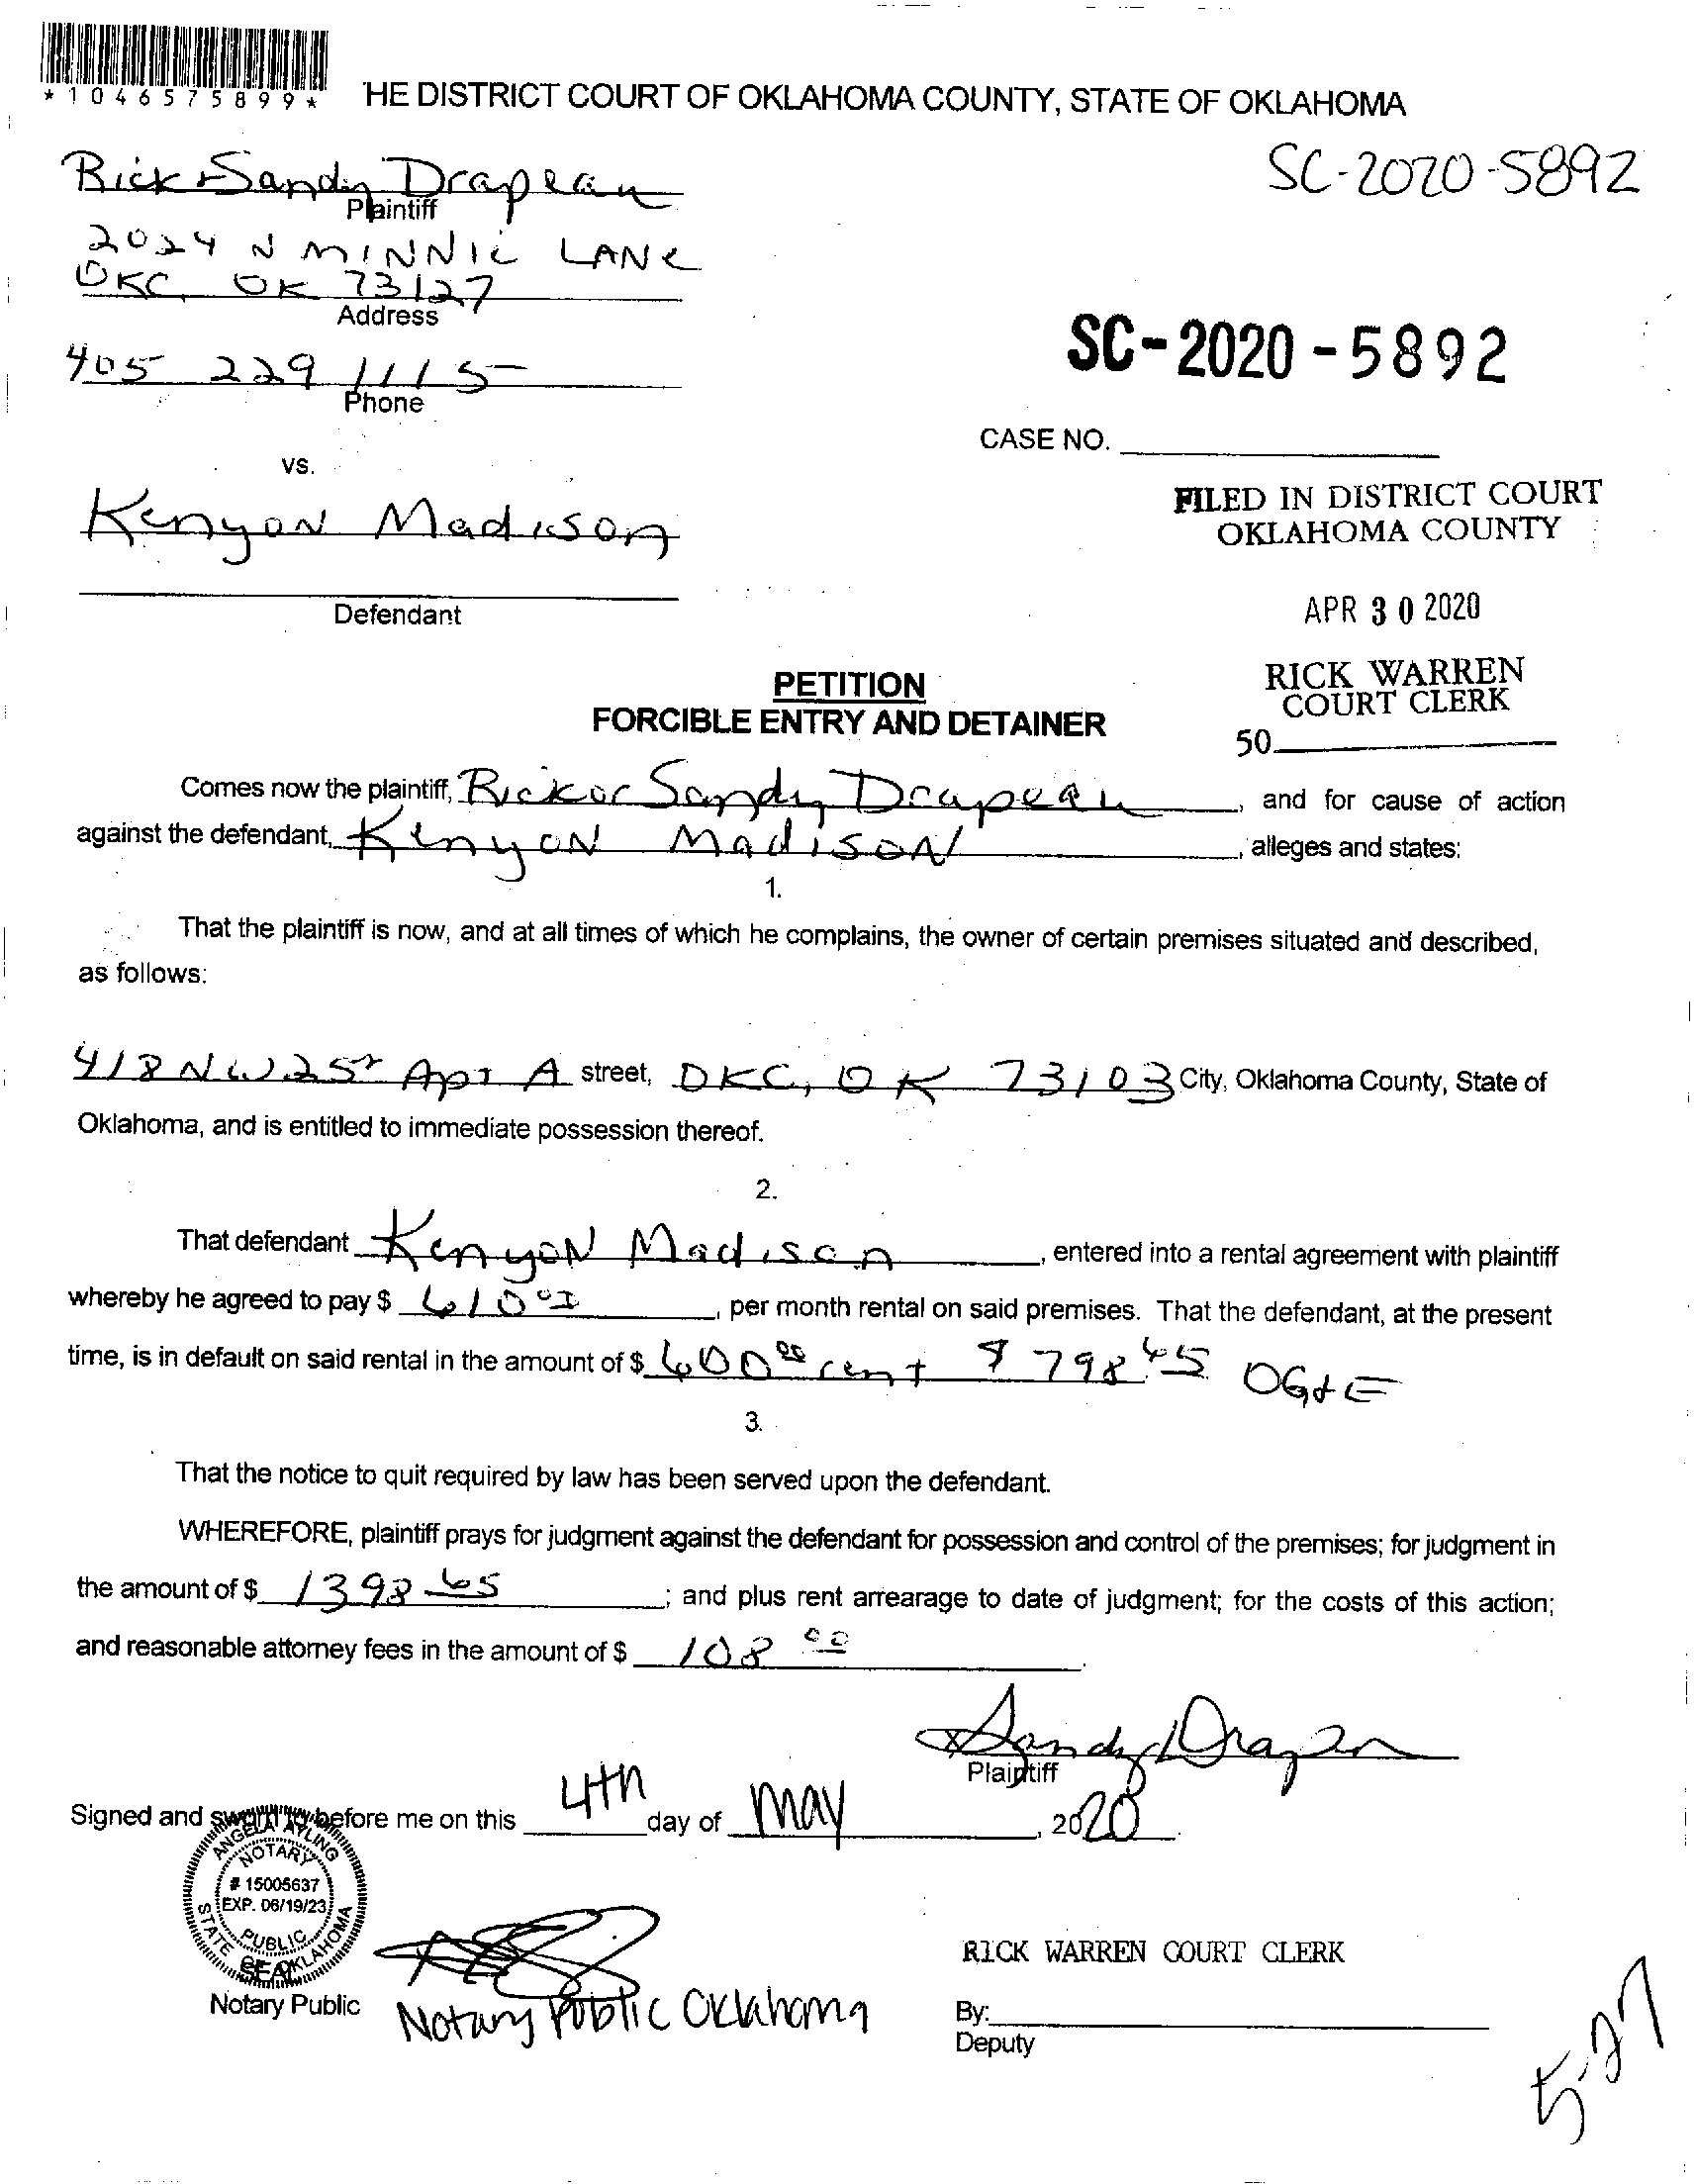 *1046575899*
HE DISTRICT COURT OF OKLAHOMA COUNTY, STATE OF OKLAHOMA
SC-2020-5892
Rick + Sandy Drapeau
Plaintiff
2024 N MINNIE LANE
OKC, OK 73127
Address
SC-2020-5892
405 229 1115
Phone
CASE NO.
vs.
FILED IN DISTRICT COURT
OKLAHOMA COUNTY
Kenyon Madison
Defendant
APR 30 2020
RICK WARREN
COURT CLERK
50
PETITION
FORCIBLE ENTRY AND DETAINER
Comes now the plaintiff, Rick or Sandy Drapeau, and for cause of action
against the defendant, Kenyon Madison, alleges and states:
1.
That the plaintiff is now, and at all times of which he complains, the owner of certain premises situated and described,
as follows:
418 NW 25th Apt A street, OKC, OK 73103 City, Oklahoma County, State of
Oklahoma, and is entitled to immediate possession thereof.
2.
That defendant Kenyon Madison, entered into a rental agreement with plaintiff
whereby he agreed to pay $ 610, per month rental on said premises. That the defendant, at the present
time, is in default on said rental in the amount of $ 600 00 rent $ 798 65 OG+E
3.
That the notice to quit required by law has been served upon the defendant.
WHEREFORE, plaintiff prays for judgment against the defendant for possession and control of the premises; for judgment in
the amount of $ 1398 65; and plus rent arrearage to date of judgment; for the costs of this action;
and reasonable attorney fees in the amount of $ 108 00.
Sandy Drapeau
Plaintiff
Signed and sworn to before me on this 4th day of May, 2020
ANGELA AYLING
NOTARY
# 15005637
EXP. 06/19/23
PUBLIC
STATE OF OKLAHOMA
SEAL
Notary Public
Notary Public Oklahoma
RICK WARREN COURT CLERK
By:
Deputy
5-27